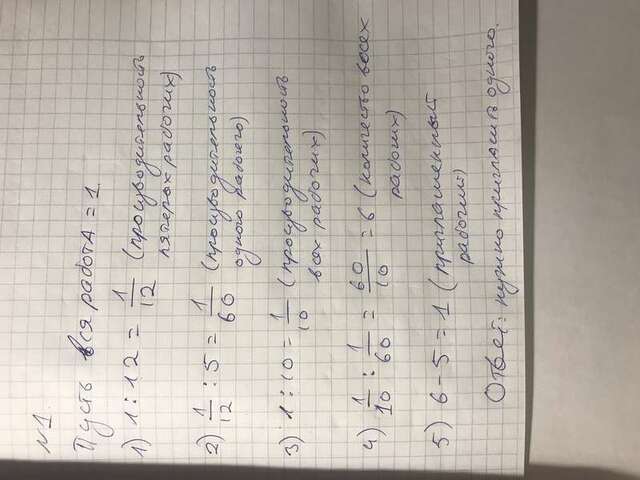 №1.
Пусть вся работа = 1.
1) 1 : 12 = 1/12 (производительность
пятерых рабочих)
2) 1/12 : 5 = 1/60 (производительность
одного рабочего)
3) 1 : 10 = 1/10 (производительность
всех рабочих)
4) 1/10 : 1/60 = 60/10 = 6 (количество всех
рабочих)
5) 6 - 5 = 1 (приглашенный
рабочий)
Ответ: нужно пригласить одного.